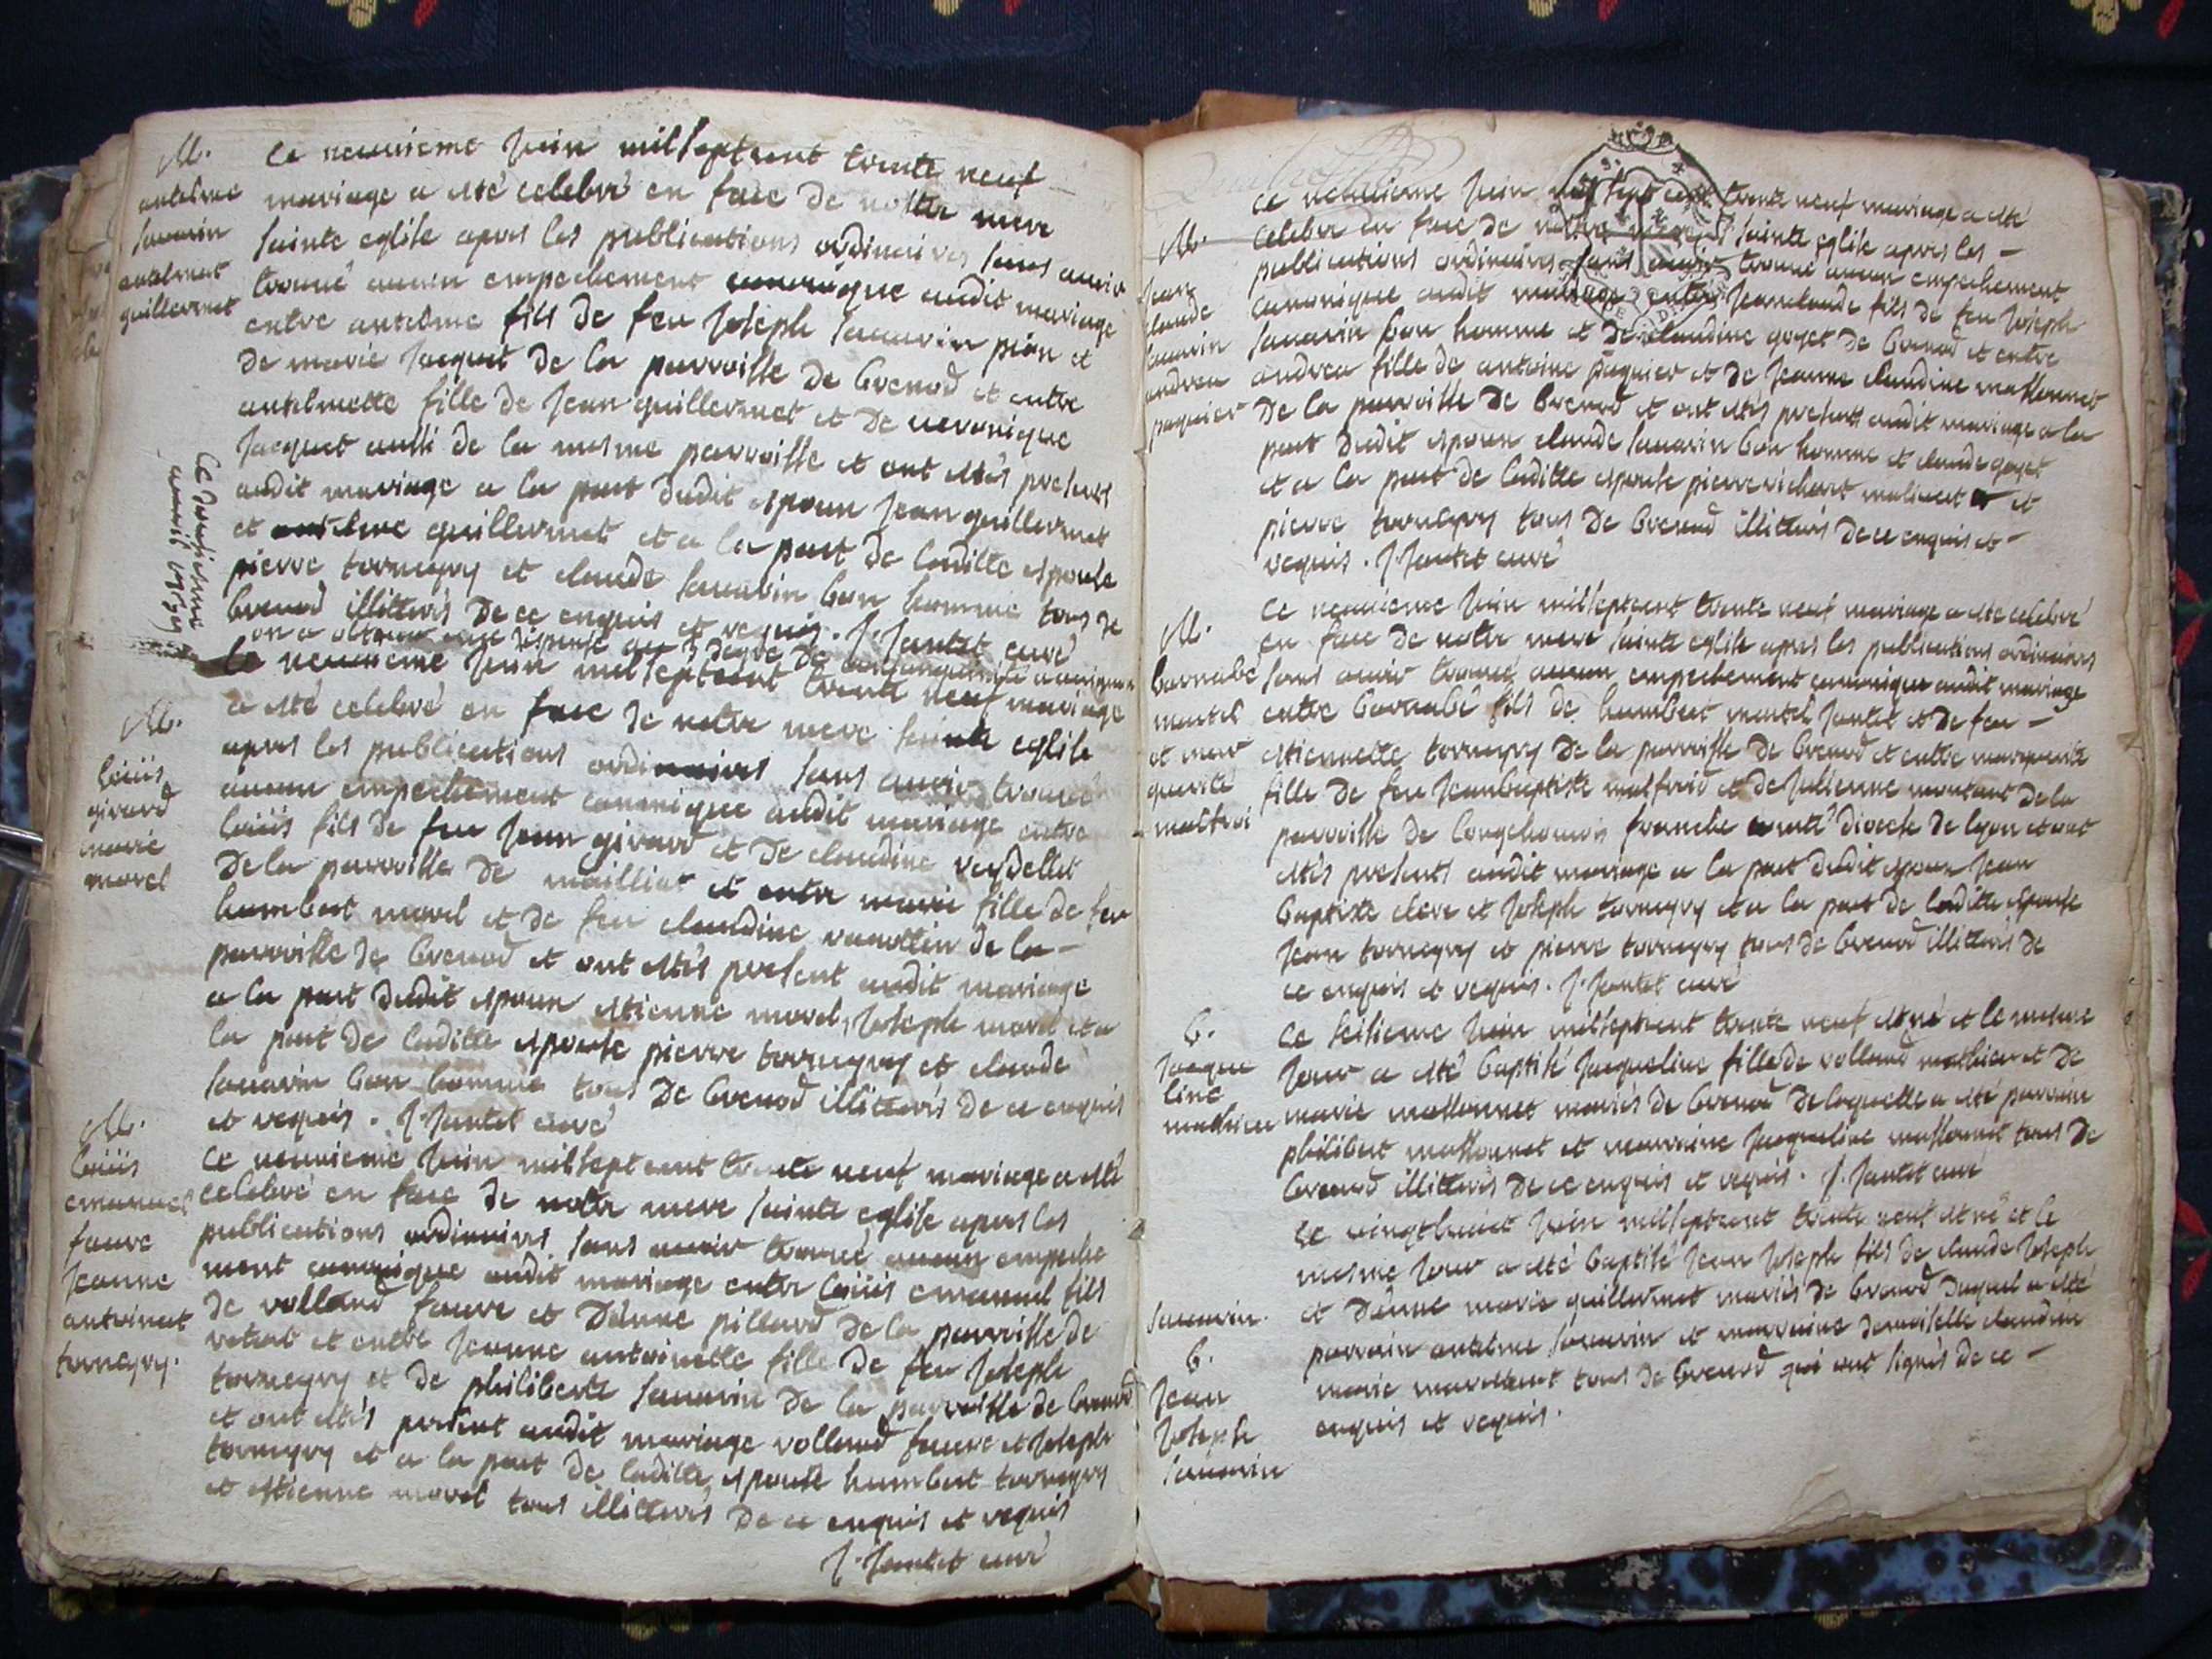 M.
antelme
sauarin
antelmet
guillermet
le neuuieme juin milseptcent trente neuf
mariage a esté celebré en face de nostre mere
sainte eglise apres les publications ordinaires sans auoir
trouué aucun empechement canonique audit mariage
entre antelme fils de feu joseph sauarin pion et
de marie jaquet de la parroisse de brenod et entre
antelmette fille de jean guillermet et de ueronique
jacquet aussi de la mesme parroisse et ont estés presents
audit mariage a la part dudit espoux jean guillermet
et antelme guillermet et a la part de laditte espouse
pierre torneyry et claude sauarin bon homme tous de
brenod illitterés de ce enquis et requis. J. Jantet curé
on a obtenu une dispense au 3 degré de consanguinité
ce
auril 1739
M.
loüis
girard
marie
morel
le neuuieme juin milseptcent trente neuf mariage
a esté celebré en face de notre mere sainte eglise
apres les publications ordinaires sans auoir trouué
aucun empechement canonique audit mariage entre
loüis fils de feu jean girard et de claudine
de la parroisse de mailliat et entre marie fille de feu
humbert morel et de feu claudine de la
parroisse de brenod et ont estés present audit mariage
a la part dudit espoux estienne morel, joseph morel et a
la part de laditte espouse pierre torneyry et claude
sauarin bon homme tous de brenod illitterés de ce enquis
et requis. J. Jantet curé
M.
loüis
emanuel
faure
jeanne
antoinet
torneyry.
le neuuieme juin milseptcent trente neuf mariage a esté
celebré en face de notre mere sainte eglise apres les
publications ordinaires sans auoir trouué aucun empeche
ment canonique audit mariage entre loüis emanuel fils
de rolland faure et d'anne pillard de la parroisse de
retort et entre jeanne antoinette fille de feu joseph
torneyry et de philiberte sauarin de la parroisse de brenod
et ont estés present audit mariage rolland faure et joseph
torneyry et a la part de laditte espouse humbert torneyry
et estienne morel tous illitterés de ce enquis et requis
J. Jantet curé
M.
jean
claude
sauarin
andrea
paquier
ce neuuieme juin mil sept cent trente neuf mariage a esté
celebré en face de nostre mere sainte eglise apres les
publications ordinaires sans auoir trouué aucun empechement
canonique audit mariage entre jeanclaude fils de feu joseph
sauarin bon homme et de claudine goyet de brenod et entre
andrea fille de antoine paquier et de jeanne claudine massonnet
de la parroisse de brenod et ont estés presents audit mariage a la
part dudit espoux claude sauarin bon homme et claude goyet
et a la part de laditte espouse pierre richart et
pierre torneyry tous de brenod illitterés de ce enquis et
requis. J. Jantet curé
M.
barnabé
martel
et mar
guerite
malfroi
ce neuuieme juin milseptcent trente neuf mariage a esté celebré
en face de notre mere sainte eglise apres les publications ordinaires
sans auoir trouué aucun empechement canonique audit mariage
entre barnabé fils de humbert martel jantet et de feu
estiennette torneyry de la parroisse de brenod et entre marguerite
fille de feu jeanbaptiste malfroid et de julienne de la
parroisse de longchaumois franche comté diocese de lyon et ont
estés presents audit mariage a la part dudit espoux jean
baptiste et joseph torneyry et a la part de laditte espouse
jean torneyry et pierre torneyry tous de brenod illitterés de
ce enquis et requis. J. Jantet curé
b.
jacque
line
mathieu
ce seisieme juin milseptcent trente neuf est né et le mesme
jour a esté baptisé jaqueline fille de rolland mathieu et de
marie massonnet mariés de brenod de laquelle a esté parrain
philibert massonnet et marraine jacqueline massonnet tous de
brenod illitterés de ce enquis et requis. J. Jantet curé
sauarin.
b.
jean
joseph
sauarin
le vingthuict juin milseptcent trente neuf est né et le
mesme jour a esté baptisé jean joseph fils de claude joseph
et d'anne marie guillermet mariés de brenod duquel a esté
parrain antelme sauarin et marraine demoiselle claudine
marie tous de brenod qui ont signés de ce
enquis et requis.